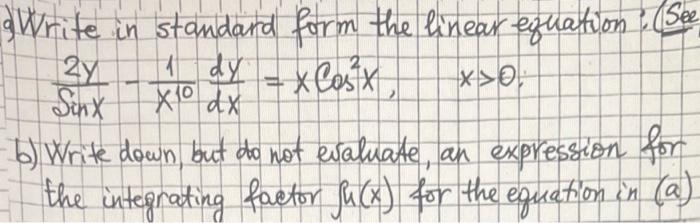 a) Write in standard form the linear equation : (See
2y/Sinx - 1/x^10 dy/dx = x Cos²x, x>0.
b) Write down, but do not evaluate, an expression for
the integrating factor μ(x) for the equation in (a)